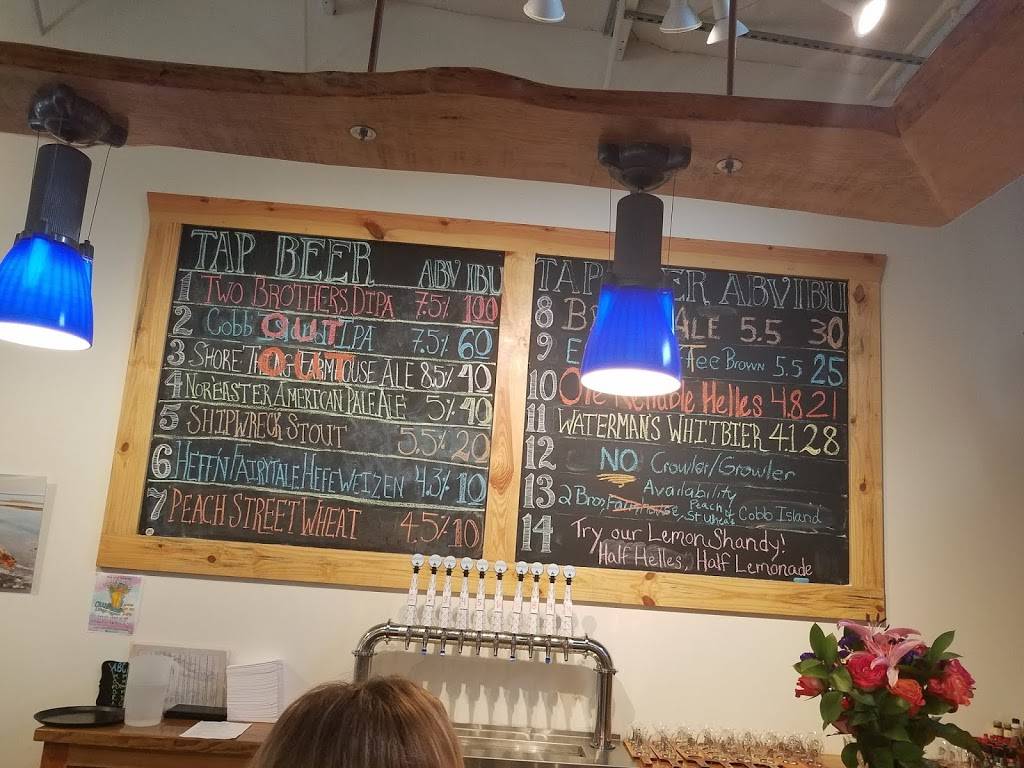 TAP BEER ABV IBU
1 TWO BROTHERS DIPA 7.5% 100
2 COBB OUT IPA 7.5% 60
3 SHORE OUT FARMHOUSE ALE 8.5% 40
4 NOREASTER AMERICAN PALE ALE 5% 40
5 SHIPWRECK STOUT 5.5% 20
6 HEFF'N FAIRYTALE HEFEWEIZEN 4.3% 10
7 PEACH STREET WHEAT 4.5% 10
TAP ABV IBU
8 ALE 5.5 30
9 Brown 5.5 25
10 Reliable Helles 4.8 21
11 WATERMAN'S WHITBIER 4.1 28
12 NO Crowler/Growler
13 Availability
2 Bros, Farmhouse, Peach St Wheat & Cobb Island
14 Try our Lemon Shandy!
Half Helles, Half Lemonade